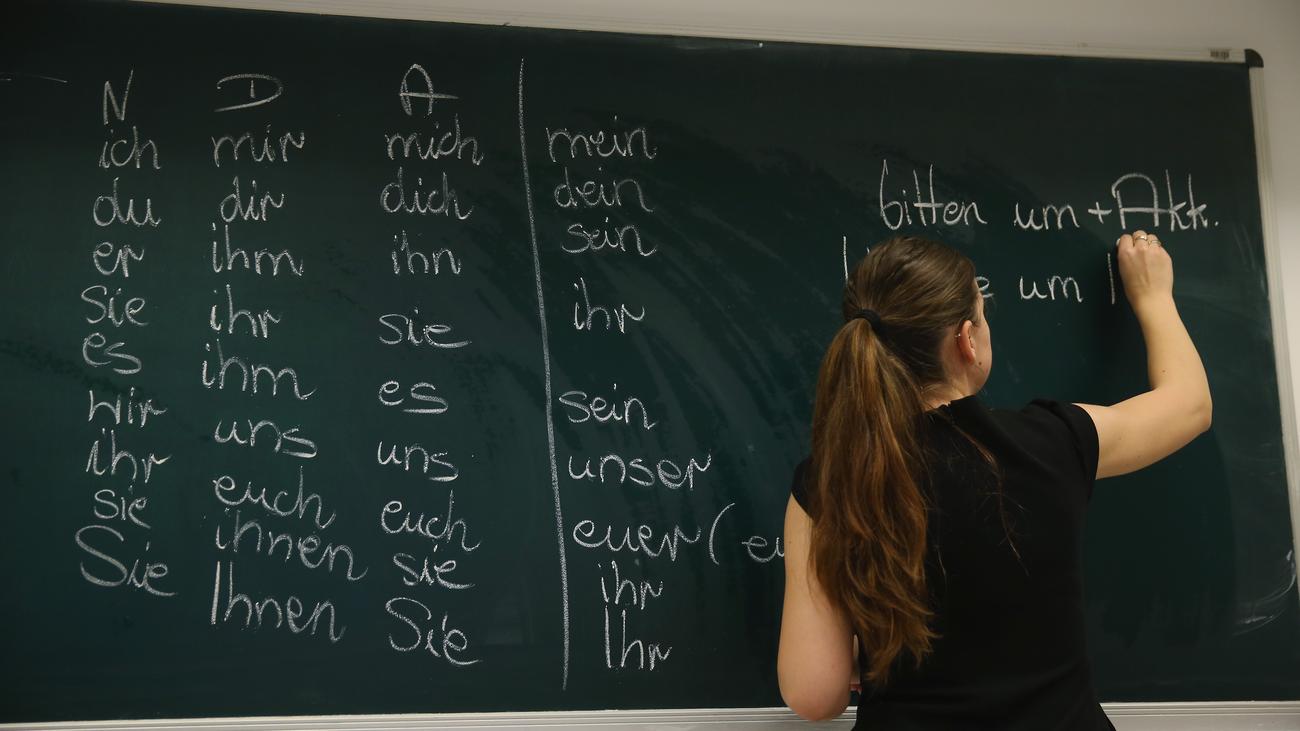 N D A
ich mir mich mein
du dir dich dein
er ihm ihn sein
sie ihr sie ihr
es ihm es sein
wir uns uns unser
ihr euch euch euer (
sie ihnen sie ihr
Sie Ihnen Sie Ihr
bitten um + Akk.
um